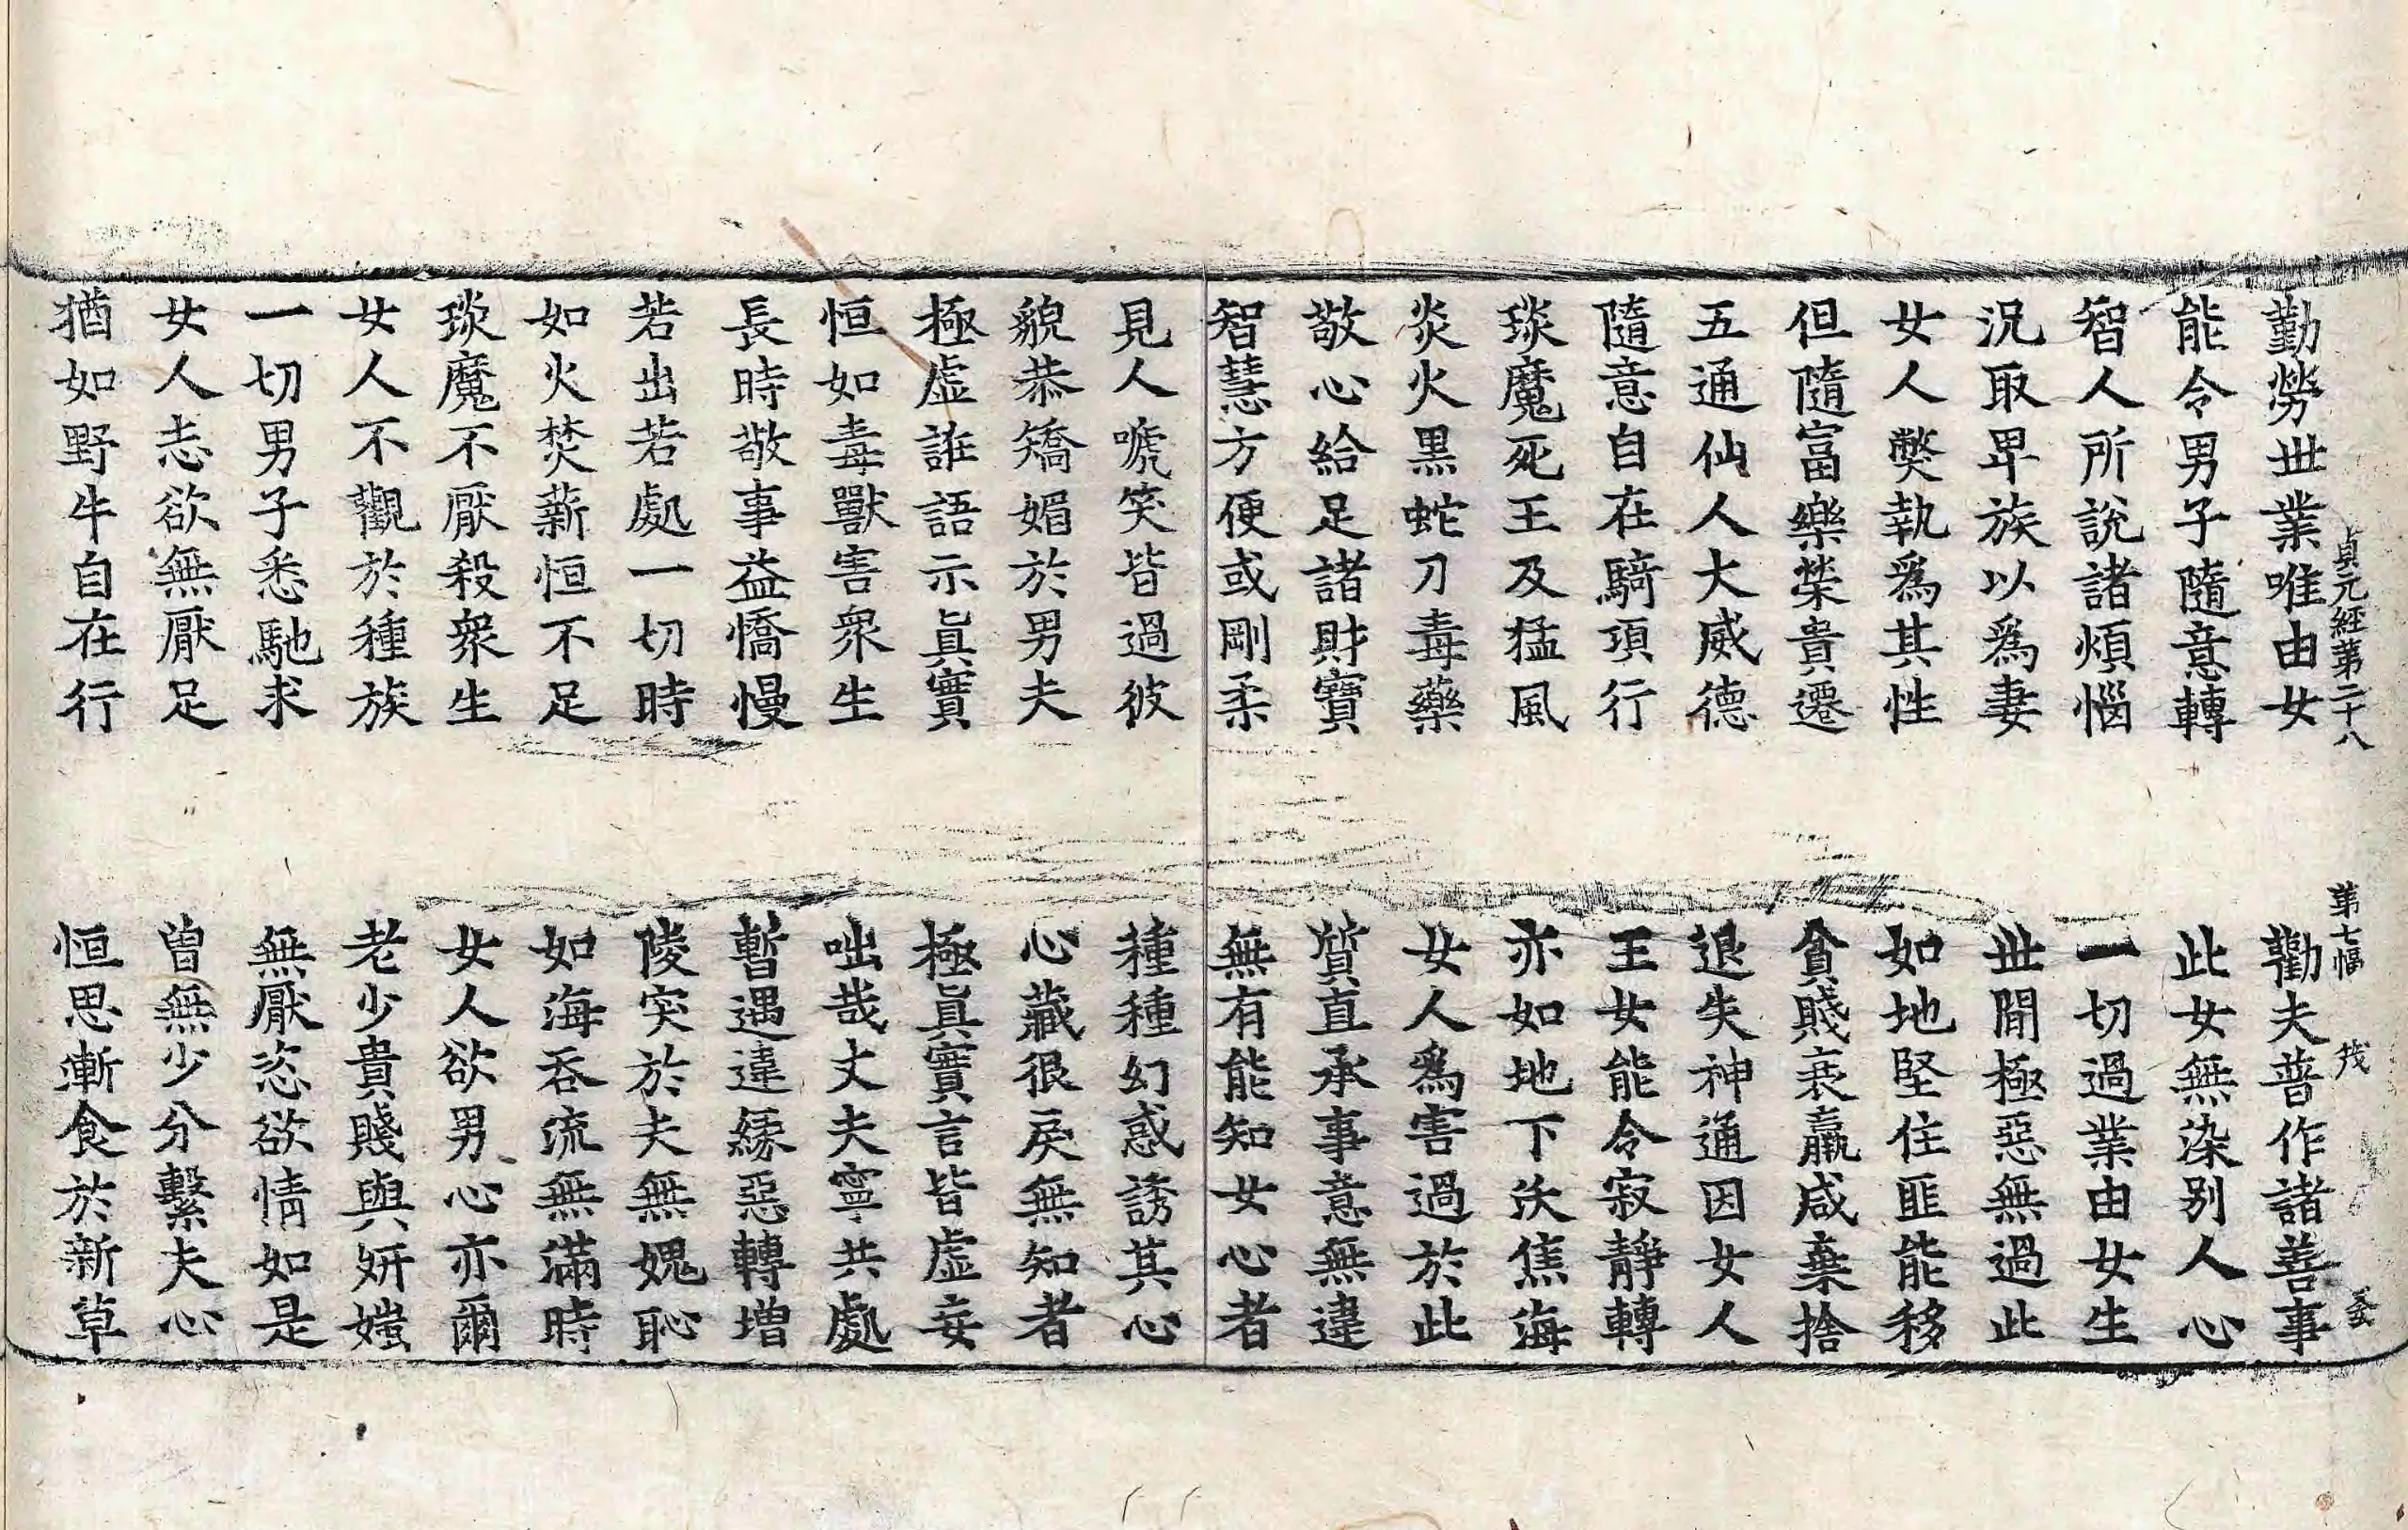 貞元經第二十八 第七幅 茂
勤勞世業唯由女 勸夫普作諸善事
能令男子隨意轉 此女無染別人心
智人所說諸煩惱 一切過業由女生
況取卑族以爲妻 世閒極惡無過此
女人獘執爲其性 如地堅住匪能移
但隨富樂榮貴遷 貪賤衰羸咸棄捨
五通仙人大威德 退失神通因女人
隨意自在騎項行 王女能令寂靜轉
琰魔死王及猛風 亦如地下沃焦海
炎火黑蛇刀毒藥 女人爲害過於此
敬心給足諸財寶 質直承事意無違
智慧方便或剛柔 無有能知女心者
見人嗁笑皆過彼 種種幻惑誘其心
貌恭矯媚於男夫 心藏很戾無知者
極虛誑語示眞實 極眞實言皆虛妄
恒如毒獸害衆生 咄哉丈夫寧共處
長時敬事益憍慢 暫遇違緣惡轉增
若出若處一切時 陵突於夫無媿恥
如火焚薪恒不足 如海吞流無滿時
琰魔不厭殺衆生 女人欲男心亦爾
女人不觀於種族 老少貴賤與妍媸
一切男子悉馳求 無厭恣欲情如是
女人恚欲無厭足 曾無少分繫夫心
猶如野牛自在行 恒思漸食於新草